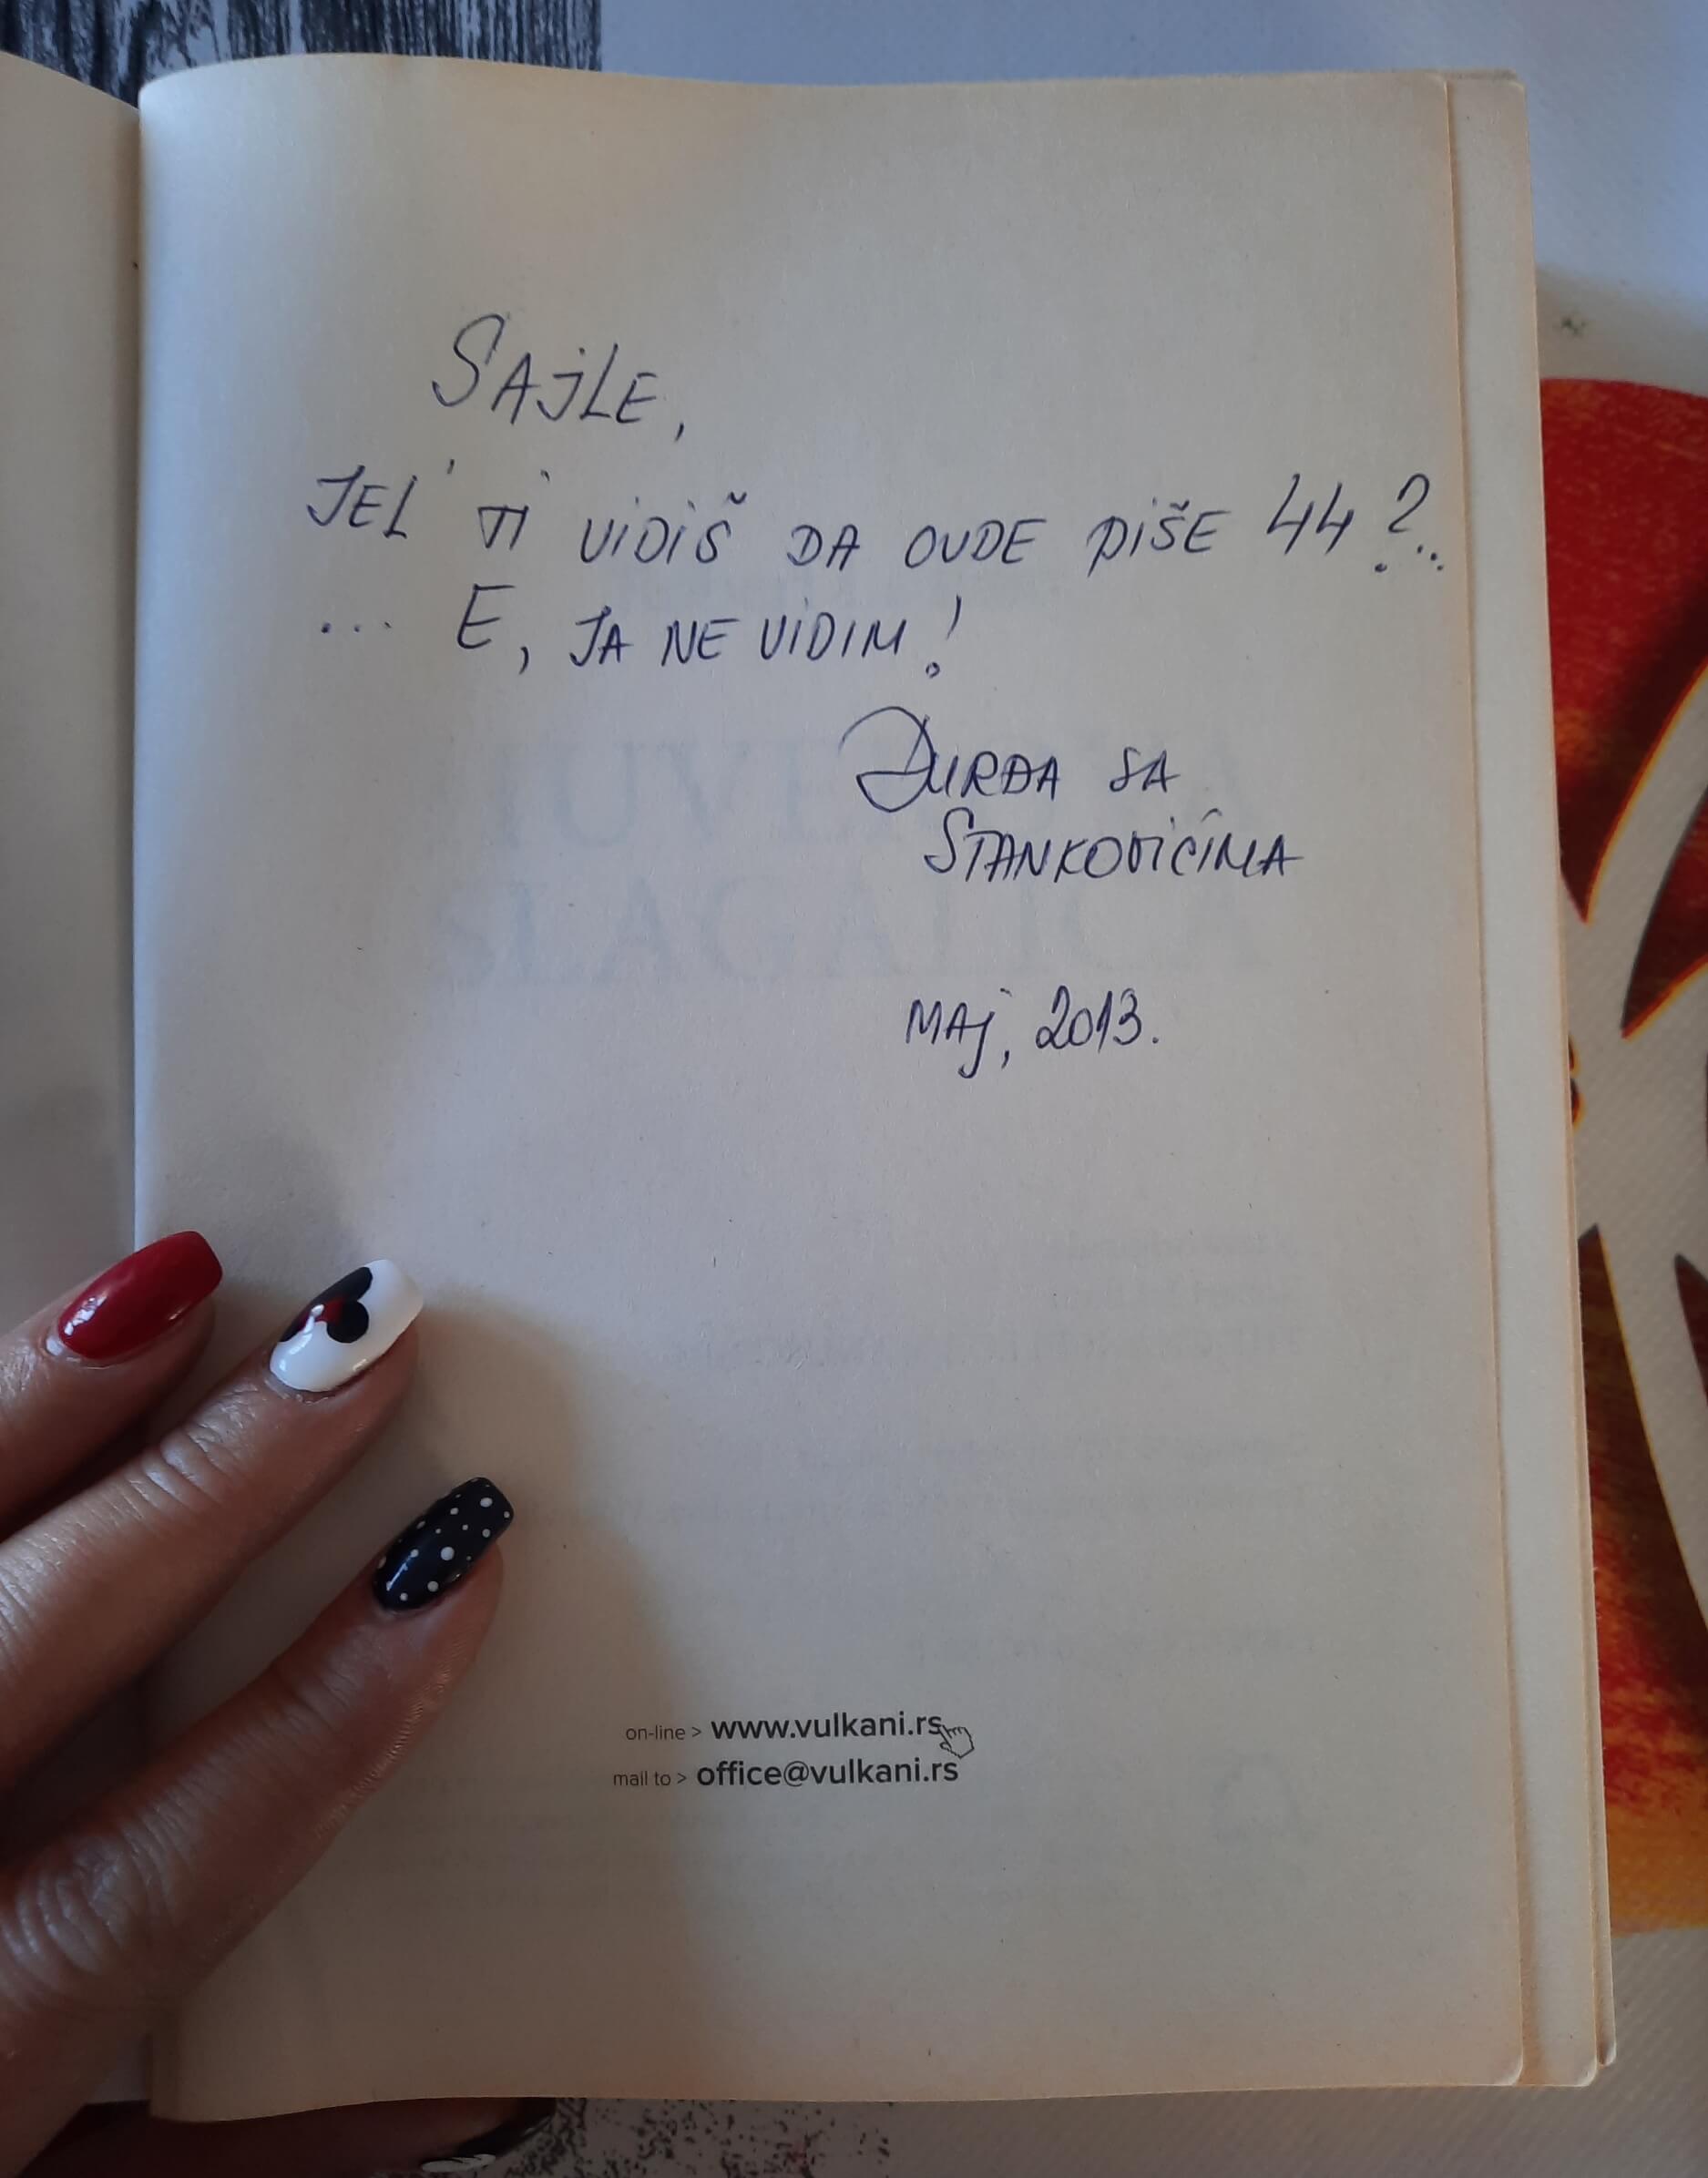 SAJLE,
JEL' TI VIDIŠ DA OVDE PIŠE 44?..
... E, JA NE VIDIM!
ĐURĐA SA
STANKOVIĆIMA
MAJ, 2013.
on-line > www.vulkani.rs
mail to > office@vulkani.rs